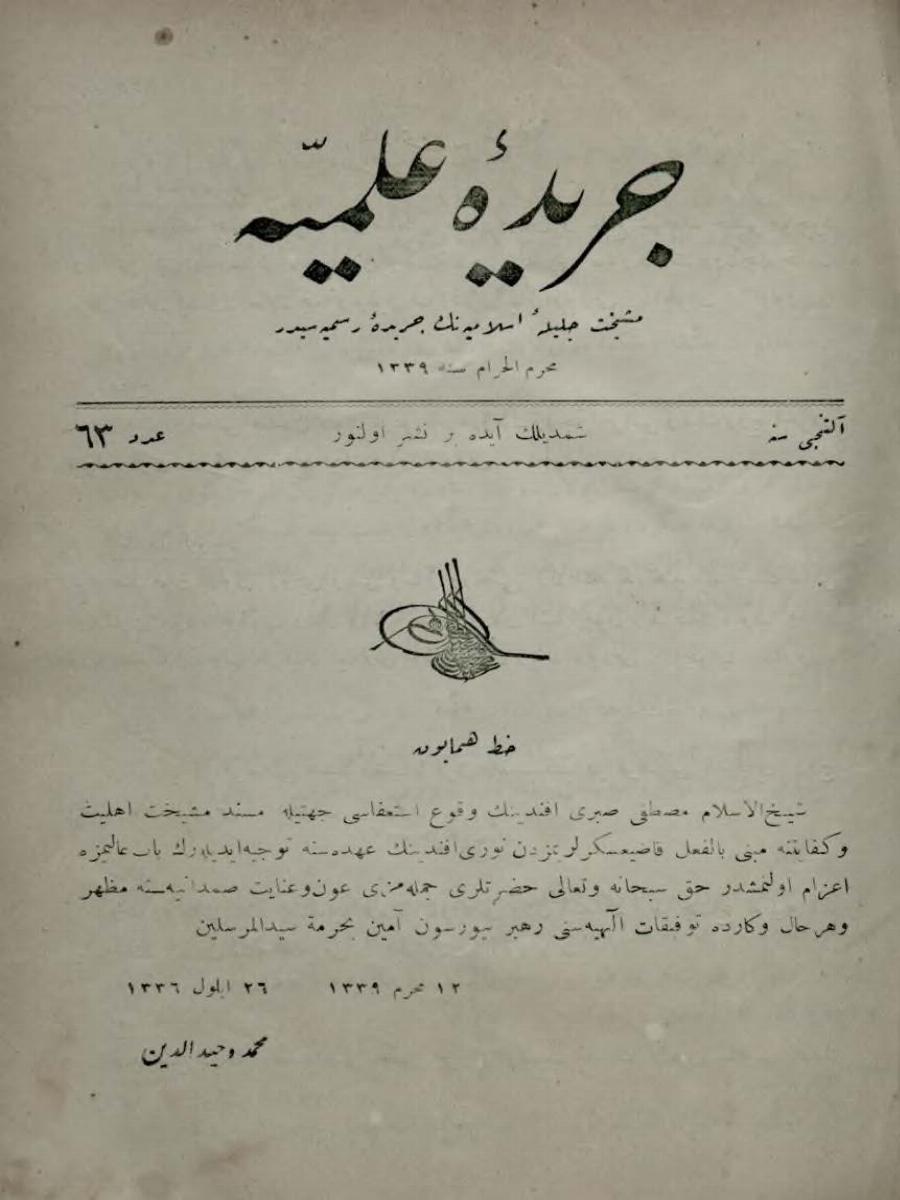 جريدۀ علميّه
مشيخت جليلۀ اسلاميه‌نك جريدۀ رسميه‌سيدر
محرم الحرام سنه ١٣٣٩
آلتنجى سنه
شمديلك آيده بر نشر اولنور
عدد ٦٣
خط همايون
شيخ‌الاسلام مصطفى صبرى افندينك وقوع استعفاسى جهتيله مسند مشيخت اهليت
و كفايتنه مبنى بالفعل قاضيعسكرلريمزدن نورى افندينك عهده‌سنه توجيه ايديله‌رك باب عاليمزه
اعزام اولنمشدر حق سبحانه وتعالى حضرتلرى جمله‌مزى عون وعنايت صمدانيه‌سنه مظهر
وهر حال وكارده توفيقات آلهيه‌سنى رهبر بيورسون آمين بحرمة سيدالمرسلين
١٢ محرم ١٣٣٩ ٢٦ ايلول ١٣٣٦
محمد وحيد الدين